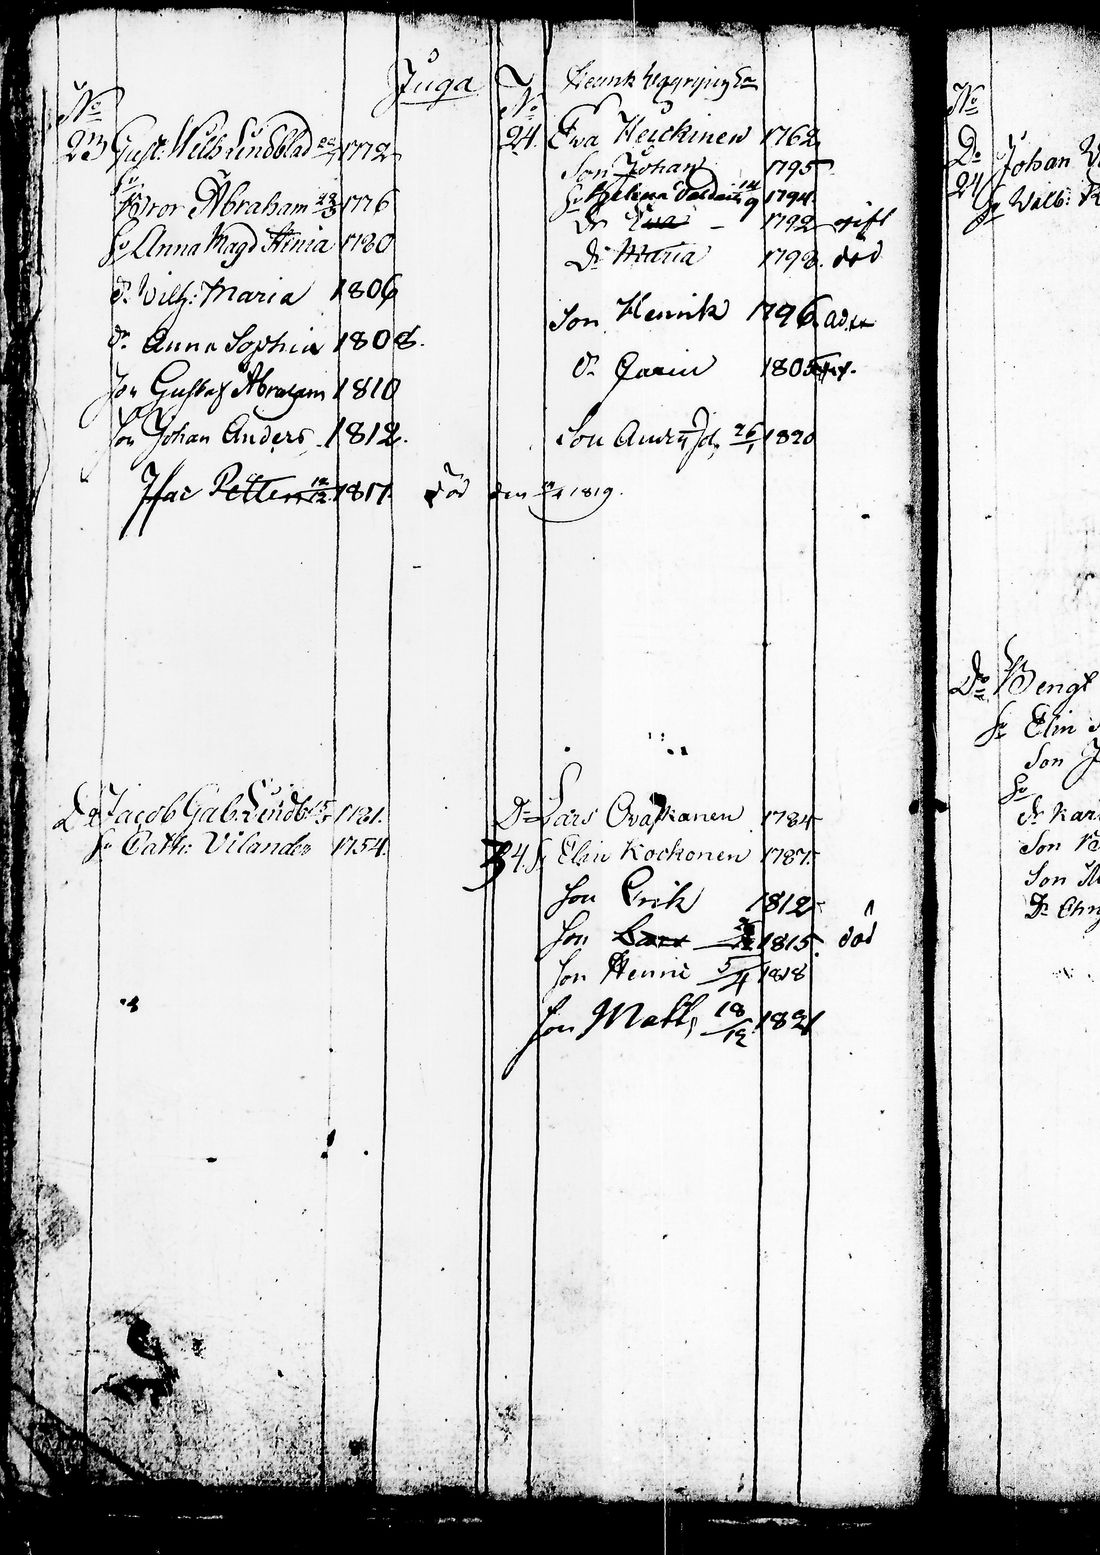 Juga
No
23 Gust: Wilh Lindblad 1772
Bror Abraham 1776
Anna Magd 1780
d: Wilh: Maria 1806
d: Anna Sophia 1808.
Son Gustaf Abraham 1810
Son Johan Anders 1812.
Isac Petter 12/12 1817 död den 1819.
Do Jacob Gab. Lindb 1721.
Cath: Vilander 1754
No
24. Eva Heickinen 1762
Son Johan 1795
Helena 14/9 1794
Dr Eva - 1792 gift
Dr Maria 1798. död
Son Henrik 1796
dr 1805
Son 26/1 1820
Do Lars Ovaskanen 1784
34. Elin Kockonen 1787
Son Erik 1812
Son Lars 1815 död
Son Henric 5/4 1818
Son Math, 18/12 1821
No
Do Johan
24 Walb:
Do Bengt
Elin
Son
Son
Son
Dr